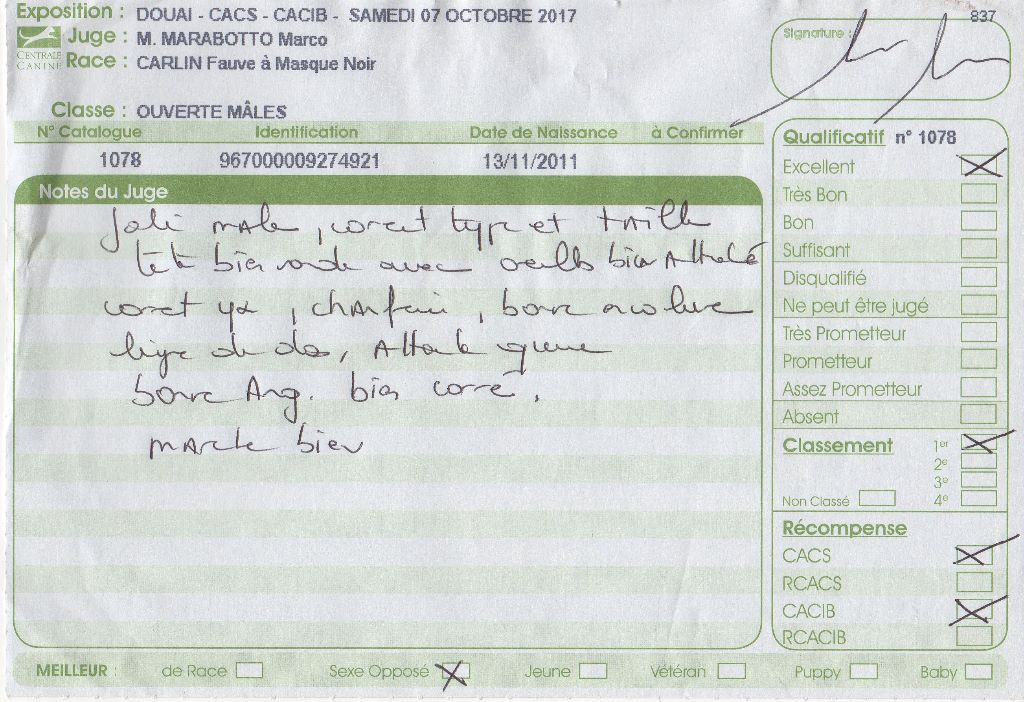 Exposition : DOUAI - CACS - CACIB - SAMEDI 07 OCTOBRE 2017
837
CENTRALE CANINE
Juge : M. MARABOTTO Marco
Race : CARLIN Fauve à Masque Noir
Signature :
Classe : OUVERTE MÂLES
N° Catalogue Identification Date de Naissance à Confirmer
1078 967000009274921 13/11/2011
Notes du Juge
Joli male, corect type et taille
tete bien ronde avec bien
corect , , bonne
ligne de dos, queue
bonne Ang. bien
marche bien
Qualificatif n° 1078
Excellent
Très Bon
Bon
Suffisant
Disqualifié
Ne peut être jugé
Très Prometteur
Prometteur
Assez Prometteur
Absent
Classement 1er
2e
3e
Non Classé 4e
Récompense
CACS
RCACS
CACIB
RCACIB
MEILLEUR : de Race Sexe Opposé Jeune Vétéran Puppy Baby